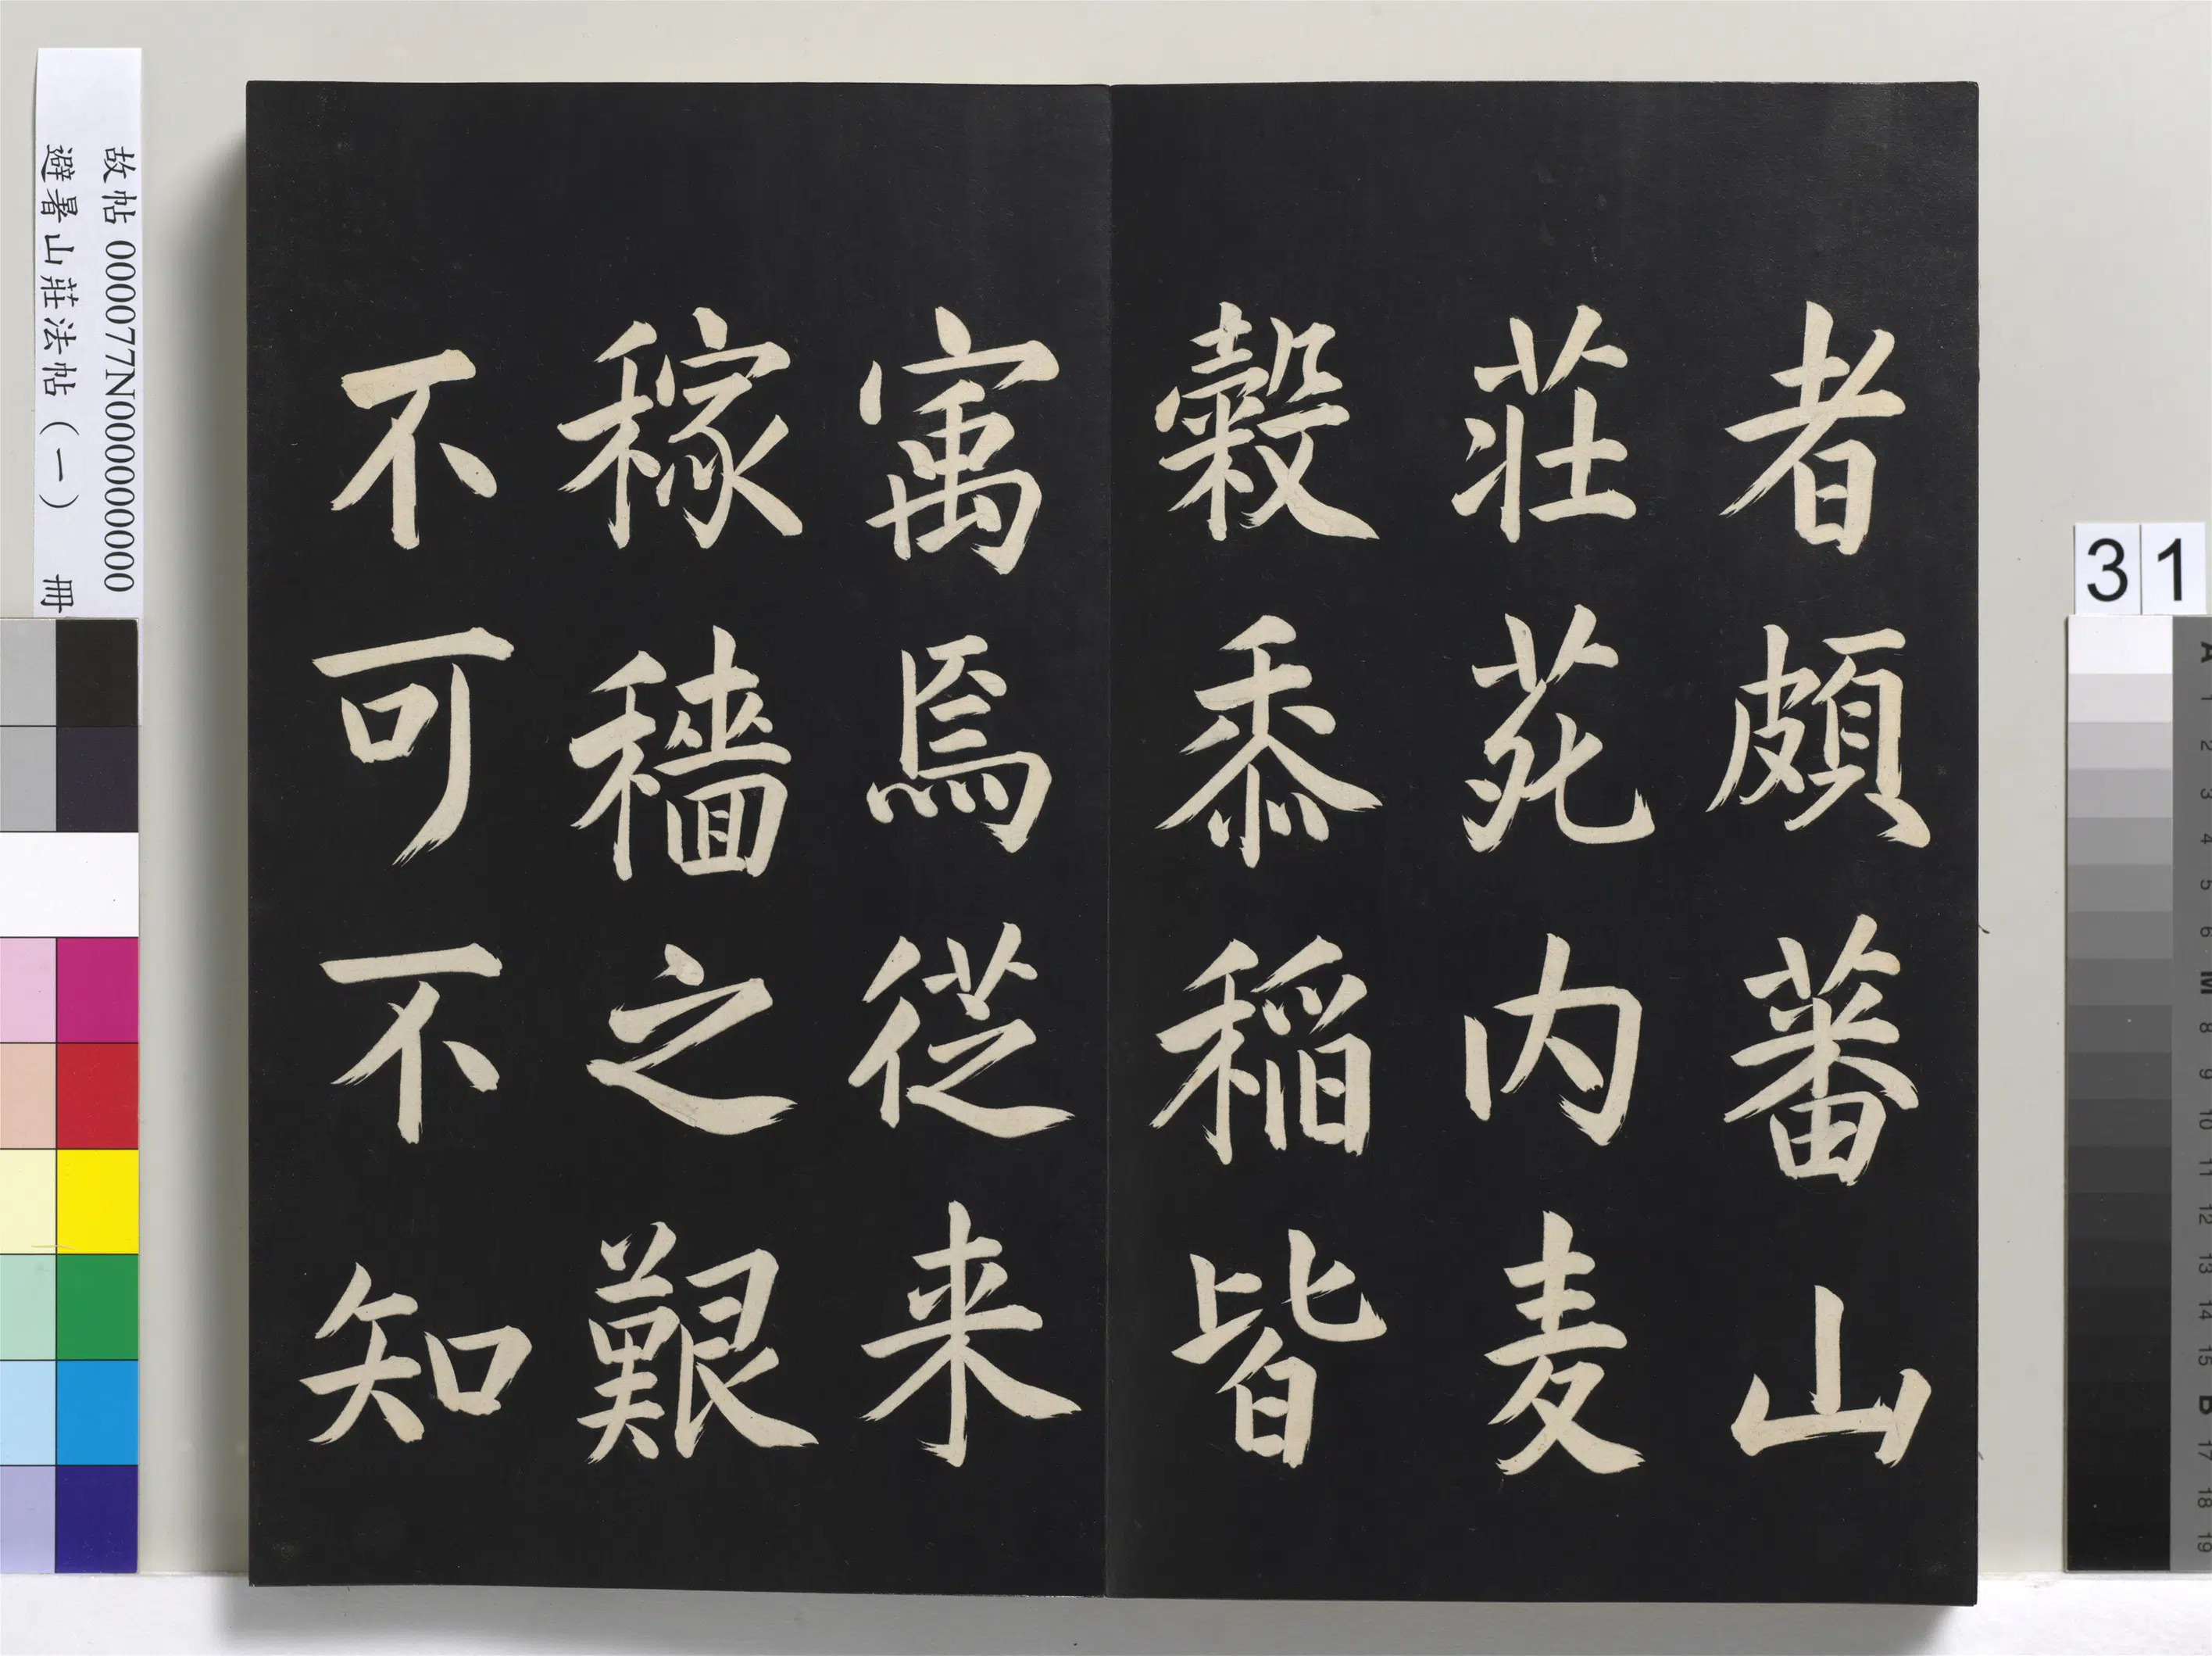 者頗蕃山
莊苑内麦
穀黍稻皆
寓焉從来
稼穡之艱
不可不知
故帖 000077N000000000
避暑山莊法帖（一） 冊
31
A
1
2
3
4
5
6
M
8
9
10
11
12
13
14
15
B
17
18
19